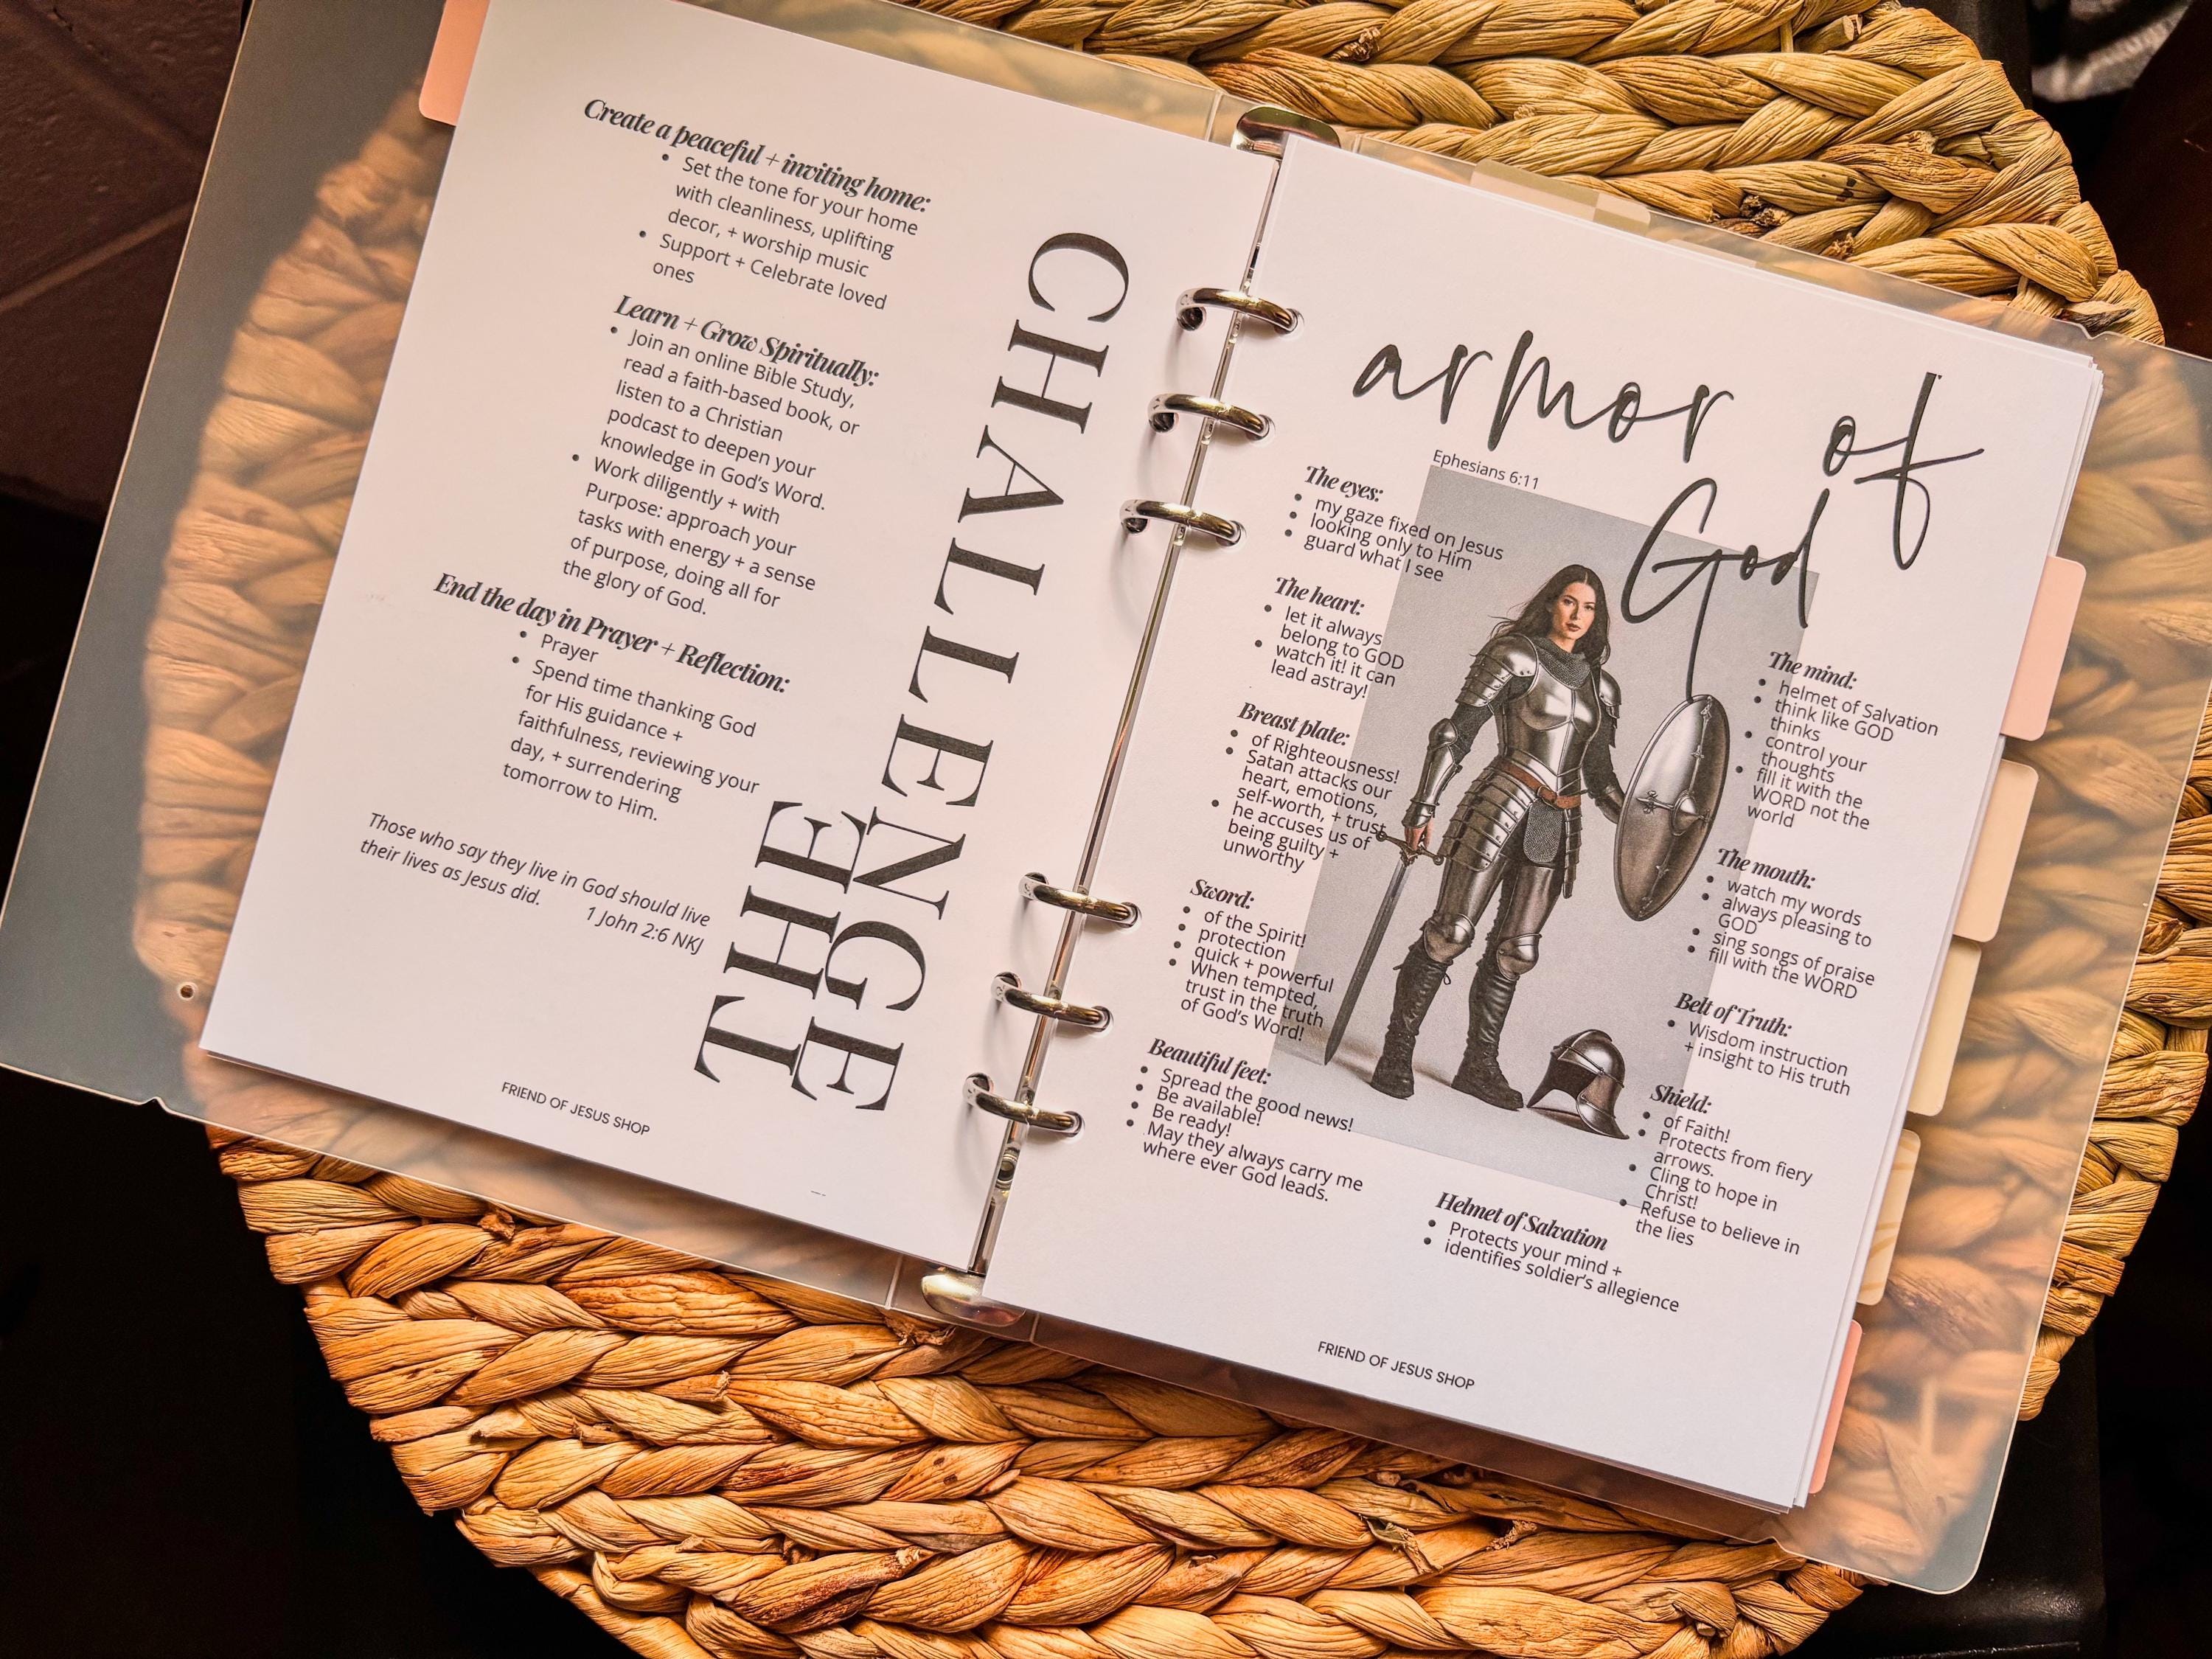 Create a peaceful + inviting home:
• Set the tone for your home
with cleanliness, uplifting
decor, + worship music
• Support + Celebrate loved
ones
Learn + Grow Spiritually:
• Join an online Bible Study,
read a faith-based book, or
listen to a Christian
podcast to deepen your
knowledge in God's Word.
• Work diligently + with
Purpose: approach your
tasks with energy + a sense
of purpose, doing all for
the glory of God.
End the day in Prayer + Reflection:
• Prayer
• Spend time thanking God
for His guidance +
faithfulness, reviewing your
day, + surrendering
tomorrow to Him.
Those who say they live in God should live
their lives as Jesus did.
1 John 2:6 NKJ
THE
CHALLENGE
FRIEND OF JESUS SHOP
armor of
God
Ephesians 6:11
The eyes:
• my gaze fixed on Jesus
• looking only to Him
• guard what I see
The heart:
• let it always
belong to GOD
• watch it! it can
lead astray!
Breast plate:
• of Righteousness!
• Satan attacks our
heart, emotions,
self-worth, + trust
• he accuses us of
being guilty +
unworthy
Sword:
• of the Spirit!
• protection
• quick + powerful
• When tempted,
trust in the truth
of God's Word!
Beautiful feet:
• Spread the good news!
• Be available!
• Be ready!
• May they always carry me
where ever God leads.
The mind:
• helmet of Salvation
• think like GOD
thinks
• control your
thoughts
• fill it with the
WORD not the
world
The mouth:
• watch my words
• always pleasing to
GOD
• sing songs of praise
• fill with the WORD
Belt of Truth:
• Wisdom instruction
+ insight to His truth
Shield:
• of Faith!
• Protects from fiery
arrows.
• Cling to hope in
Christ!
• Refuse to believe in
the lies
Helmet of Salvation
• Protects your mind +
• identifies soldier's allegience
FRIEND OF JESUS SHOP